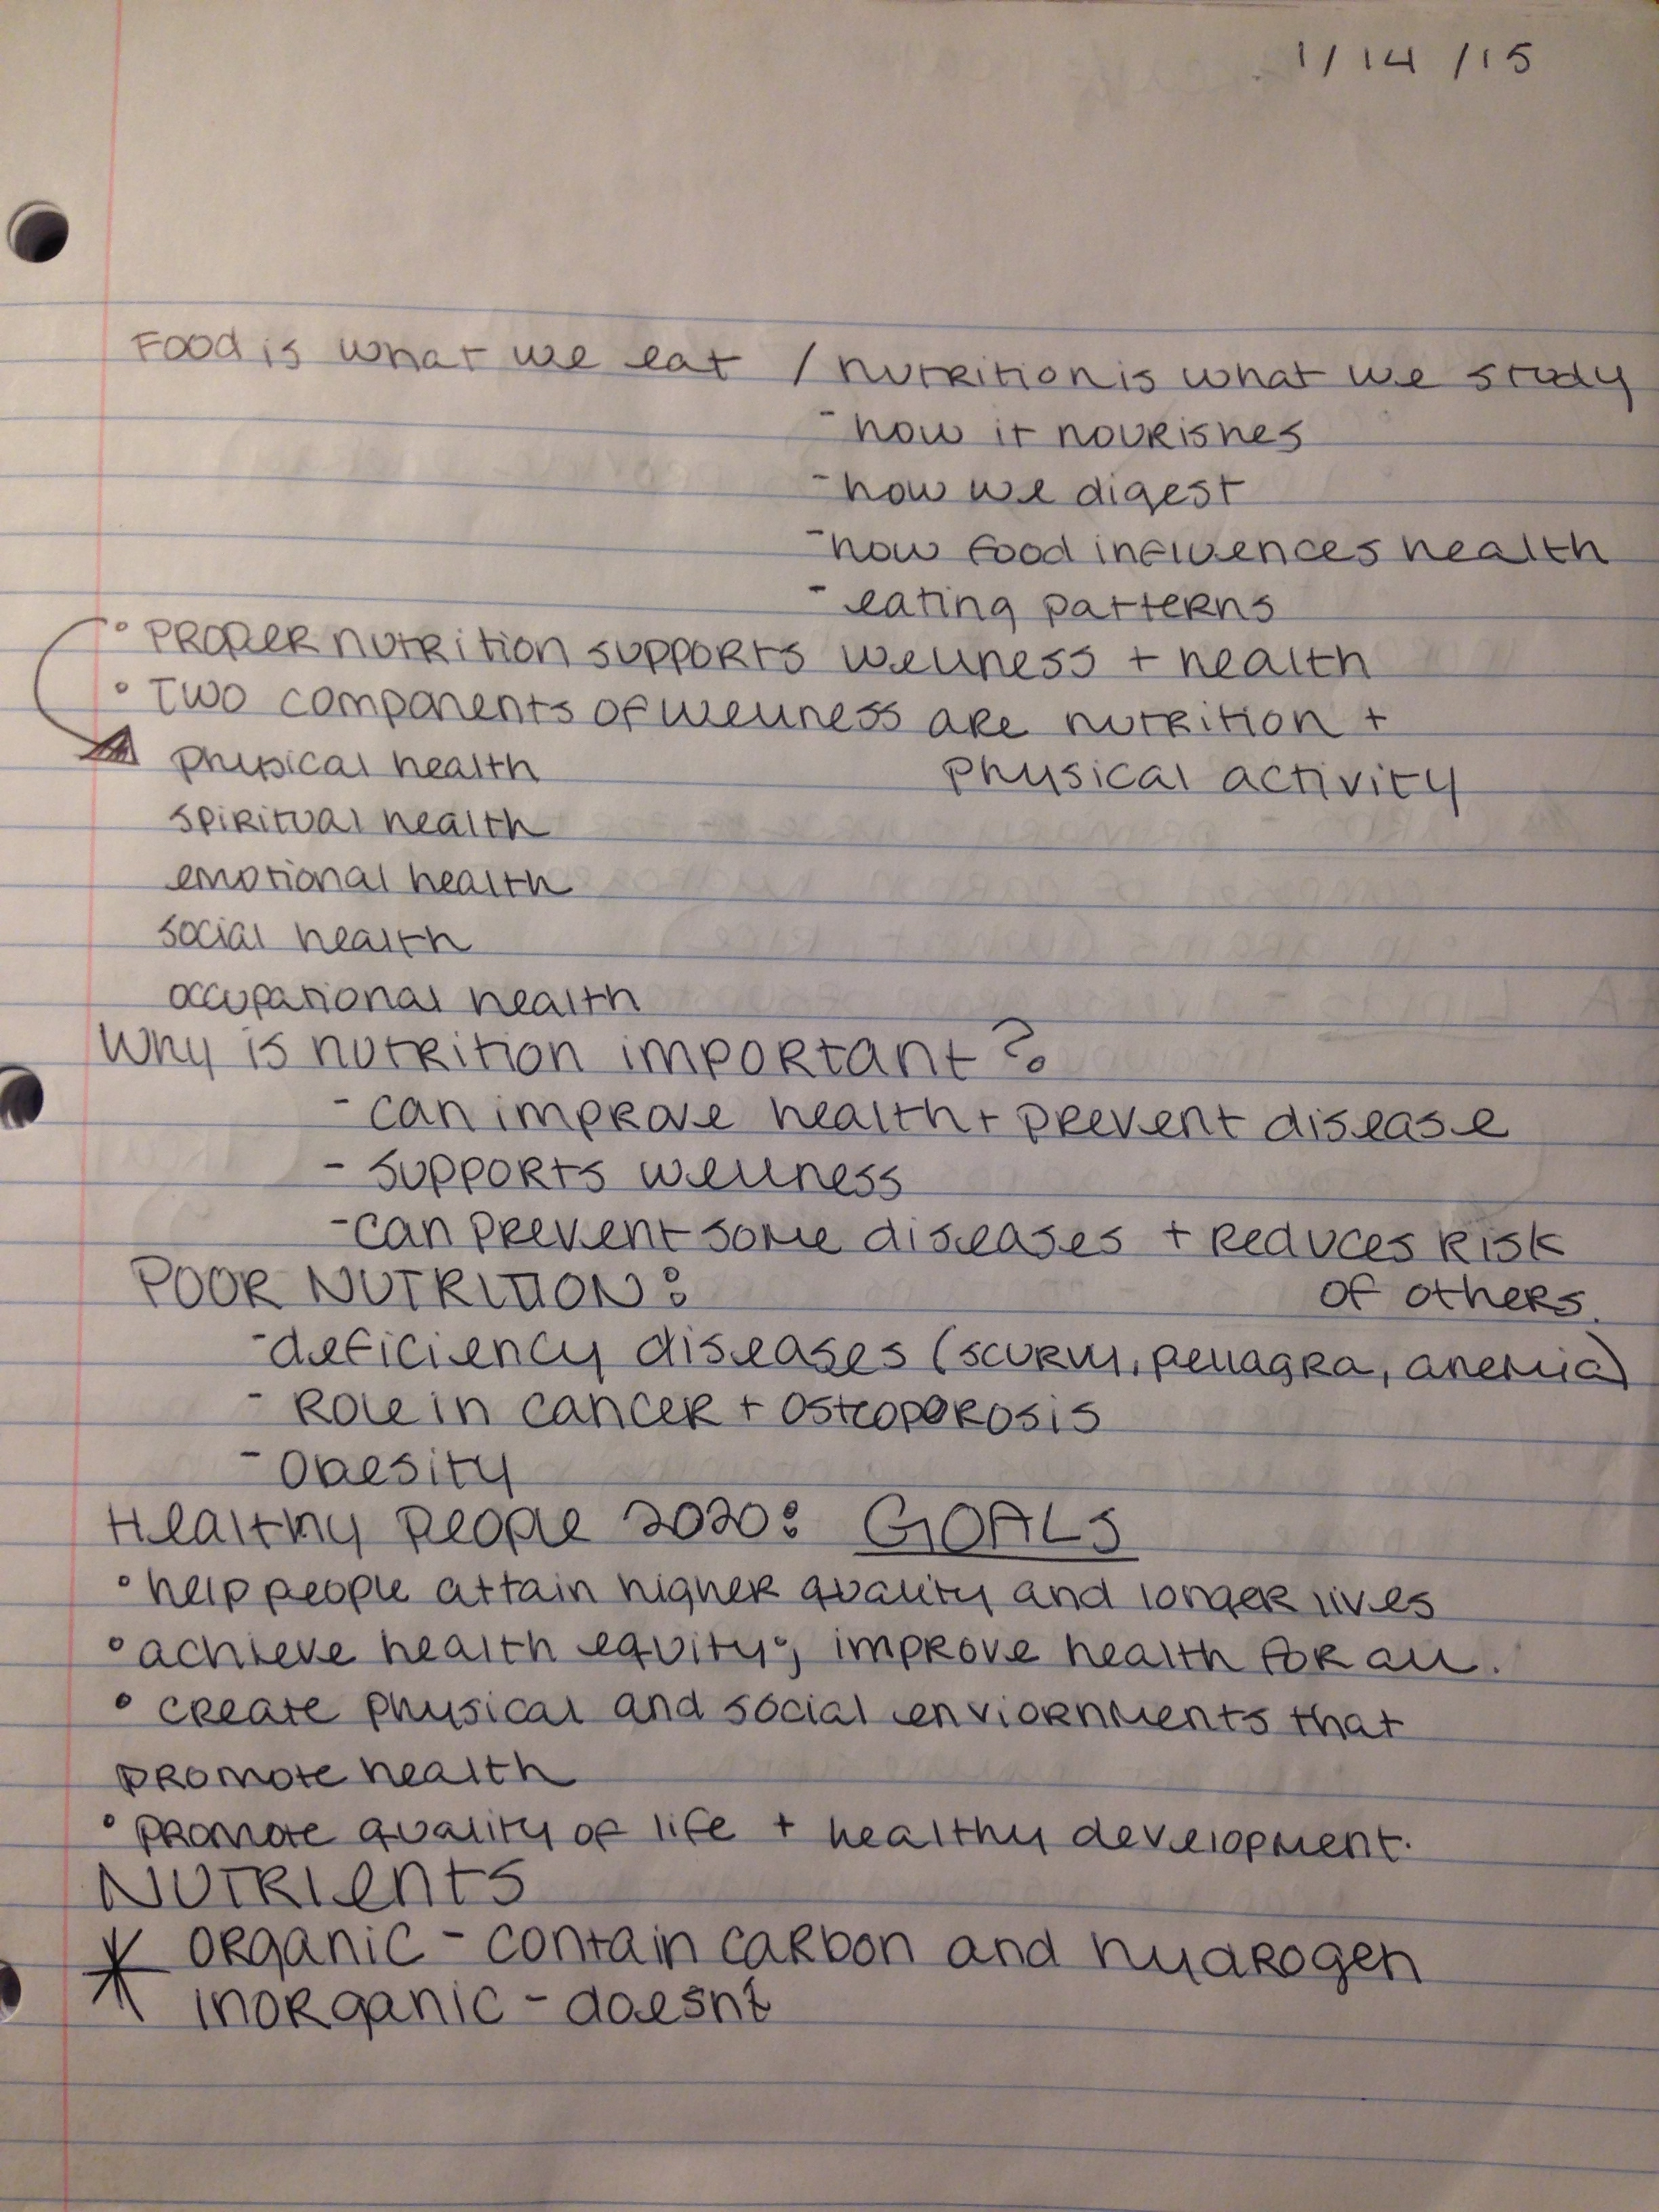 1/14/15
Food is what we eat / nutrition is what we study
- how it nourishes
- how we digest
- how food influences health
- eating patterns
• Proper nutrition supports wellness + health
• Two components of wellness are nutrition +
physical activity
physical health
spiritual health
emotional health
social health
occupational health
Why is nutrition important?
- can improve health + prevent disease
- supports wellness
- can prevent some diseases + reduces risk
of others.
POOR NUTRITION:
- deficiency diseases (scurvy, pellagra, anemia)
- Role in cancer + osteoporosis
- Obesity
Healthy people 2020: GOALS
• help people attain higher quality and longer lives
• achieve health equity; improve health for all.
• create physical and social enviornments that
promote health
• promote quality of life + healthy development.
Nutrients
* organic - contain carbon and hydrogen
inorganic - doesn't